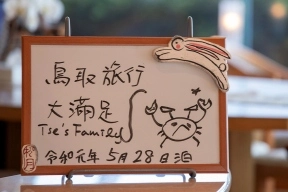 鳥取旅行
大満足
Tse's Family
令和元年 5月28日泊